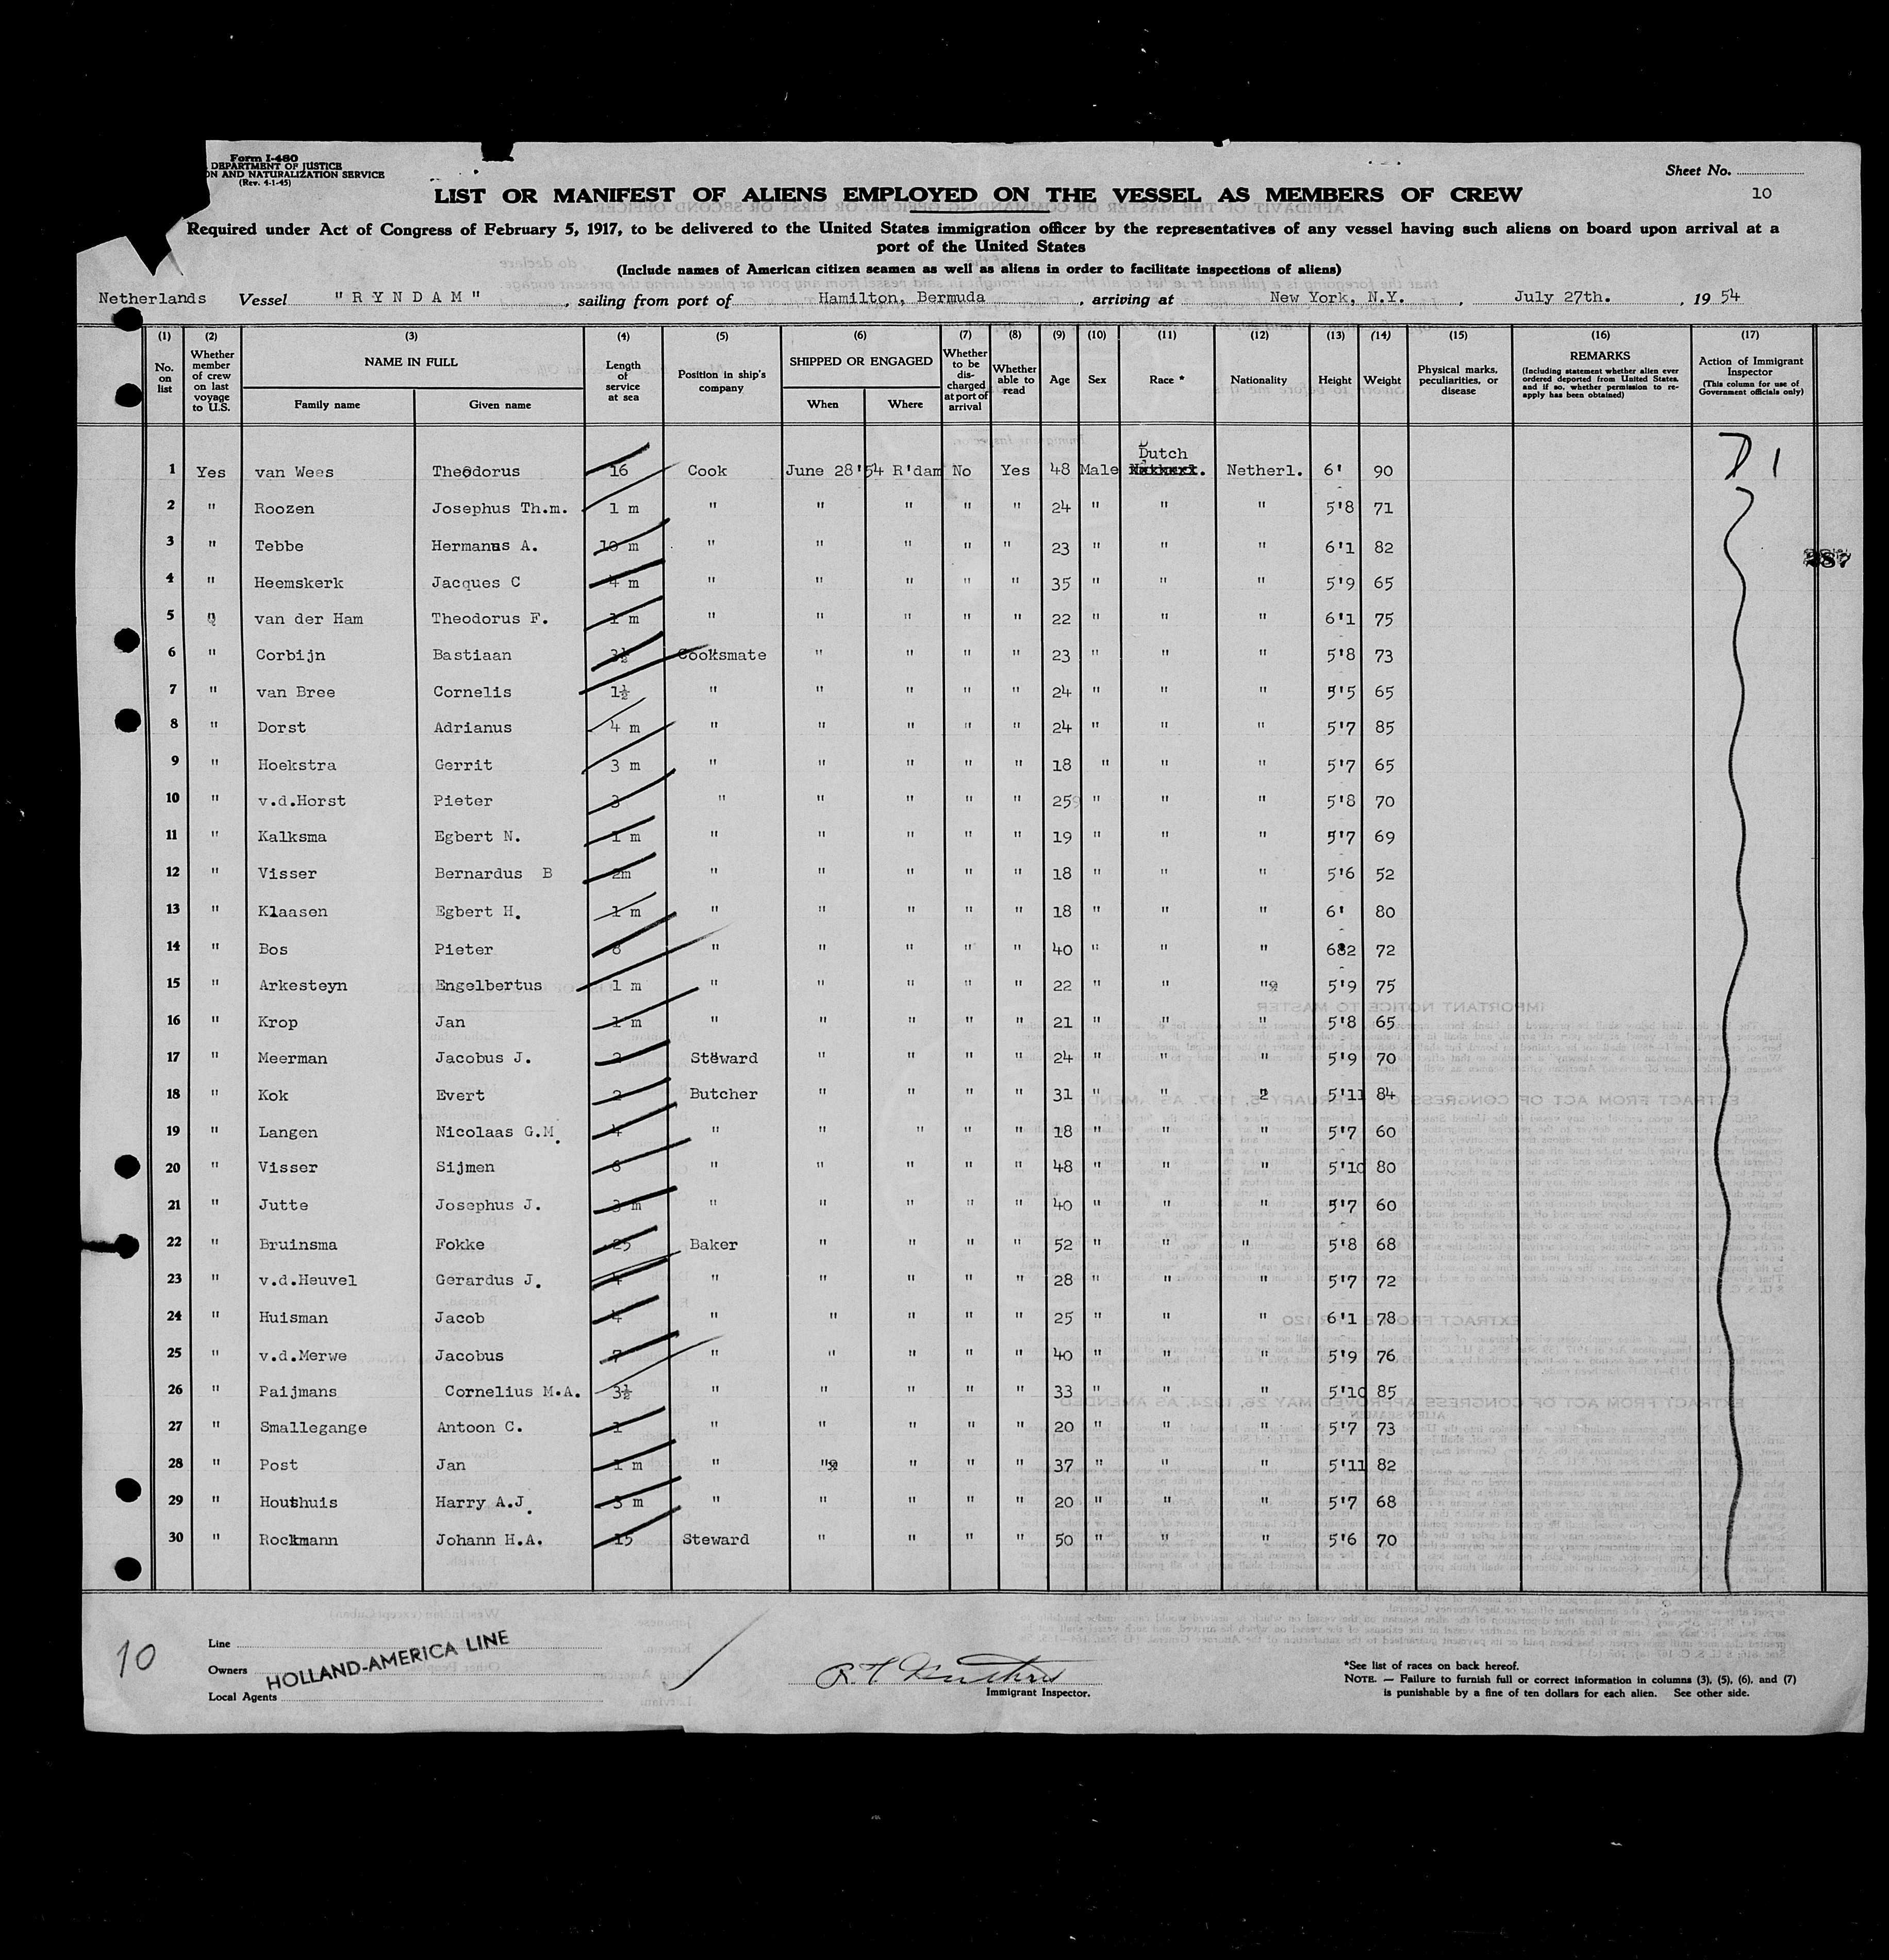 Form I-480
DEPARTMENT OF JUSTICE
ON AND NATURALIZATION SERVICE
(Rev. 4-1-45)
Sheet No.
10
LIST OR MANIFEST OF ALIENS EMPLOYED ON THE VESSEL AS MEMBERS OF CREW
Required under Act of Congress of February 5, 1917, to be delivered to the United States immigration officer by the representatives of any vessel having such aliens on board upon arrival at a
port of the United States
(Include names of American citizen seamen as well as aliens in order to facilitate inspections of aliens)
Netherlands Vessel "RYNDAM", sailing from port of Hamilton, Bermuda, arriving at New York, N.Y., July 27th., 19 54
(1) (2) (3) (4) (5) (6) (7) (8) (9) (10) (11) (12) (13) (14) (15) (16) (17)
No. on list
Whether member of crew on last voyage to U.S.
NAME IN FULL
Family name Given name
Length of service at sea
Position in ship's company
SHIPPED OR ENGAGED
When Where
Whether to be discharged at port of arrival
Whether able to read
Age
Sex
Race *
Nationality
Height
Weight
Physical marks, peculiarities, or disease
REMARKS
(Including statement whether alien ever ordered deported from United States, and if so, whether permission to reapply has been obtained)
Action of Immigrant Inspector
(This column for use of Government officials only)
Dutch
1 Yes van Wees Theodorus 16 Cook June 28'54 R'dam No Yes 48 Male Netherl. 6' 90
2 " Roozen Josephus Th.m. 1 m " " " " " 24 " " " 5'8 71
3 " Tebbe Hermanus A. 10 m " " " " " 23 " " " 6'1 82
4 " Heemskerk Jacques C 4 m " " " " " 35 " " " 5'9 65
5 " van der Ham Theodorus F. 1 m " " " " " 22 " " " 6'1 75
6 " Corbijn Bastiaan 3½ Cooksmate " " " " 23 " " " 5'8 73
7 " van Bree Cornelis 1½ " " " " " 24 " " " 5'5 65
8 " Dorst Adrianus 4 m " " " " " 24 " " " 5'7 85
9 " Hoekstra Gerrit 3 m " " " " " 18 " " " 5'7 65
10 " v.d.Horst Pieter 3 " " " " " 25 " " " 5'8 70
11 " Kalksma Egbert N. 1 m " " " " " 19 " " " 5'7 69
12 " Visser Bernardus B 2m " " " " " 18 " " " 5'6 52
13 " Klaasen Egbert H. 1 m " " " " " 18 " " " 6' 80
14 " Bos Pieter 8 " " " " " 40 " " " 6'2 72
15 " Arkesteyn Engelbertus 1 m " " " " " 22 " " " 5'9 75
16 " Krop Jan 1 m " " " " " 21 " " " 5'8 65
17 " Meerman Jacobus J. 2 Steward " " " " 24 " " " 5'9 70
18 " Kok Evert 2 Butcher " " " " 31 " " " 5'11 84
19 " Langen Nicolaas G.M. 4 " " " " " 18 " " " 5'7 60
20 " Visser Sijmen 6 " " " " " 48 " " " 5'10 80
21 " Jutte Josephus J. 3 m " " " " " 40 " " " 5'7 60
22 " Bruinsma Fokke 25 Baker " " " " 52 " " " 5'8 68
23 " v.d.Heuvel Gerardus J. 4 " " " " " 28 " " " 5'7 72
24 " Huisman Jacob 4 " " " " " 25 " " " 6'1 78
25 " v.d.Merwe Jacobus 7 " " " " " 40 " " " 5'9 76
26 " Paijmans Cornelius M.A. 3½ " " " " " 33 " " " 5'10 85
27 " Smallegange Antoon C. 1 " " " " " 20 " " " 5'7 73
28 " Post Jan 1 m " " " " " 37 " " " 5'11 82
29 " Houthuis Harry A.J. 3 m " " " " " 20 " " " 5'7 68
30 " Rockmann Johann H.A. 15 Steward " " " " 50 " " " 5'6 70
287
10
Line
Owners HOLLAND-AMERICA LINE
Local Agents
Immigrant Inspector.
*See list of races on back hereof.
NOTE. — Failure to furnish full or correct information in columns (3), (5), (6), and (7)
is punishable by a fine of ten dollars for each alien. See other side.